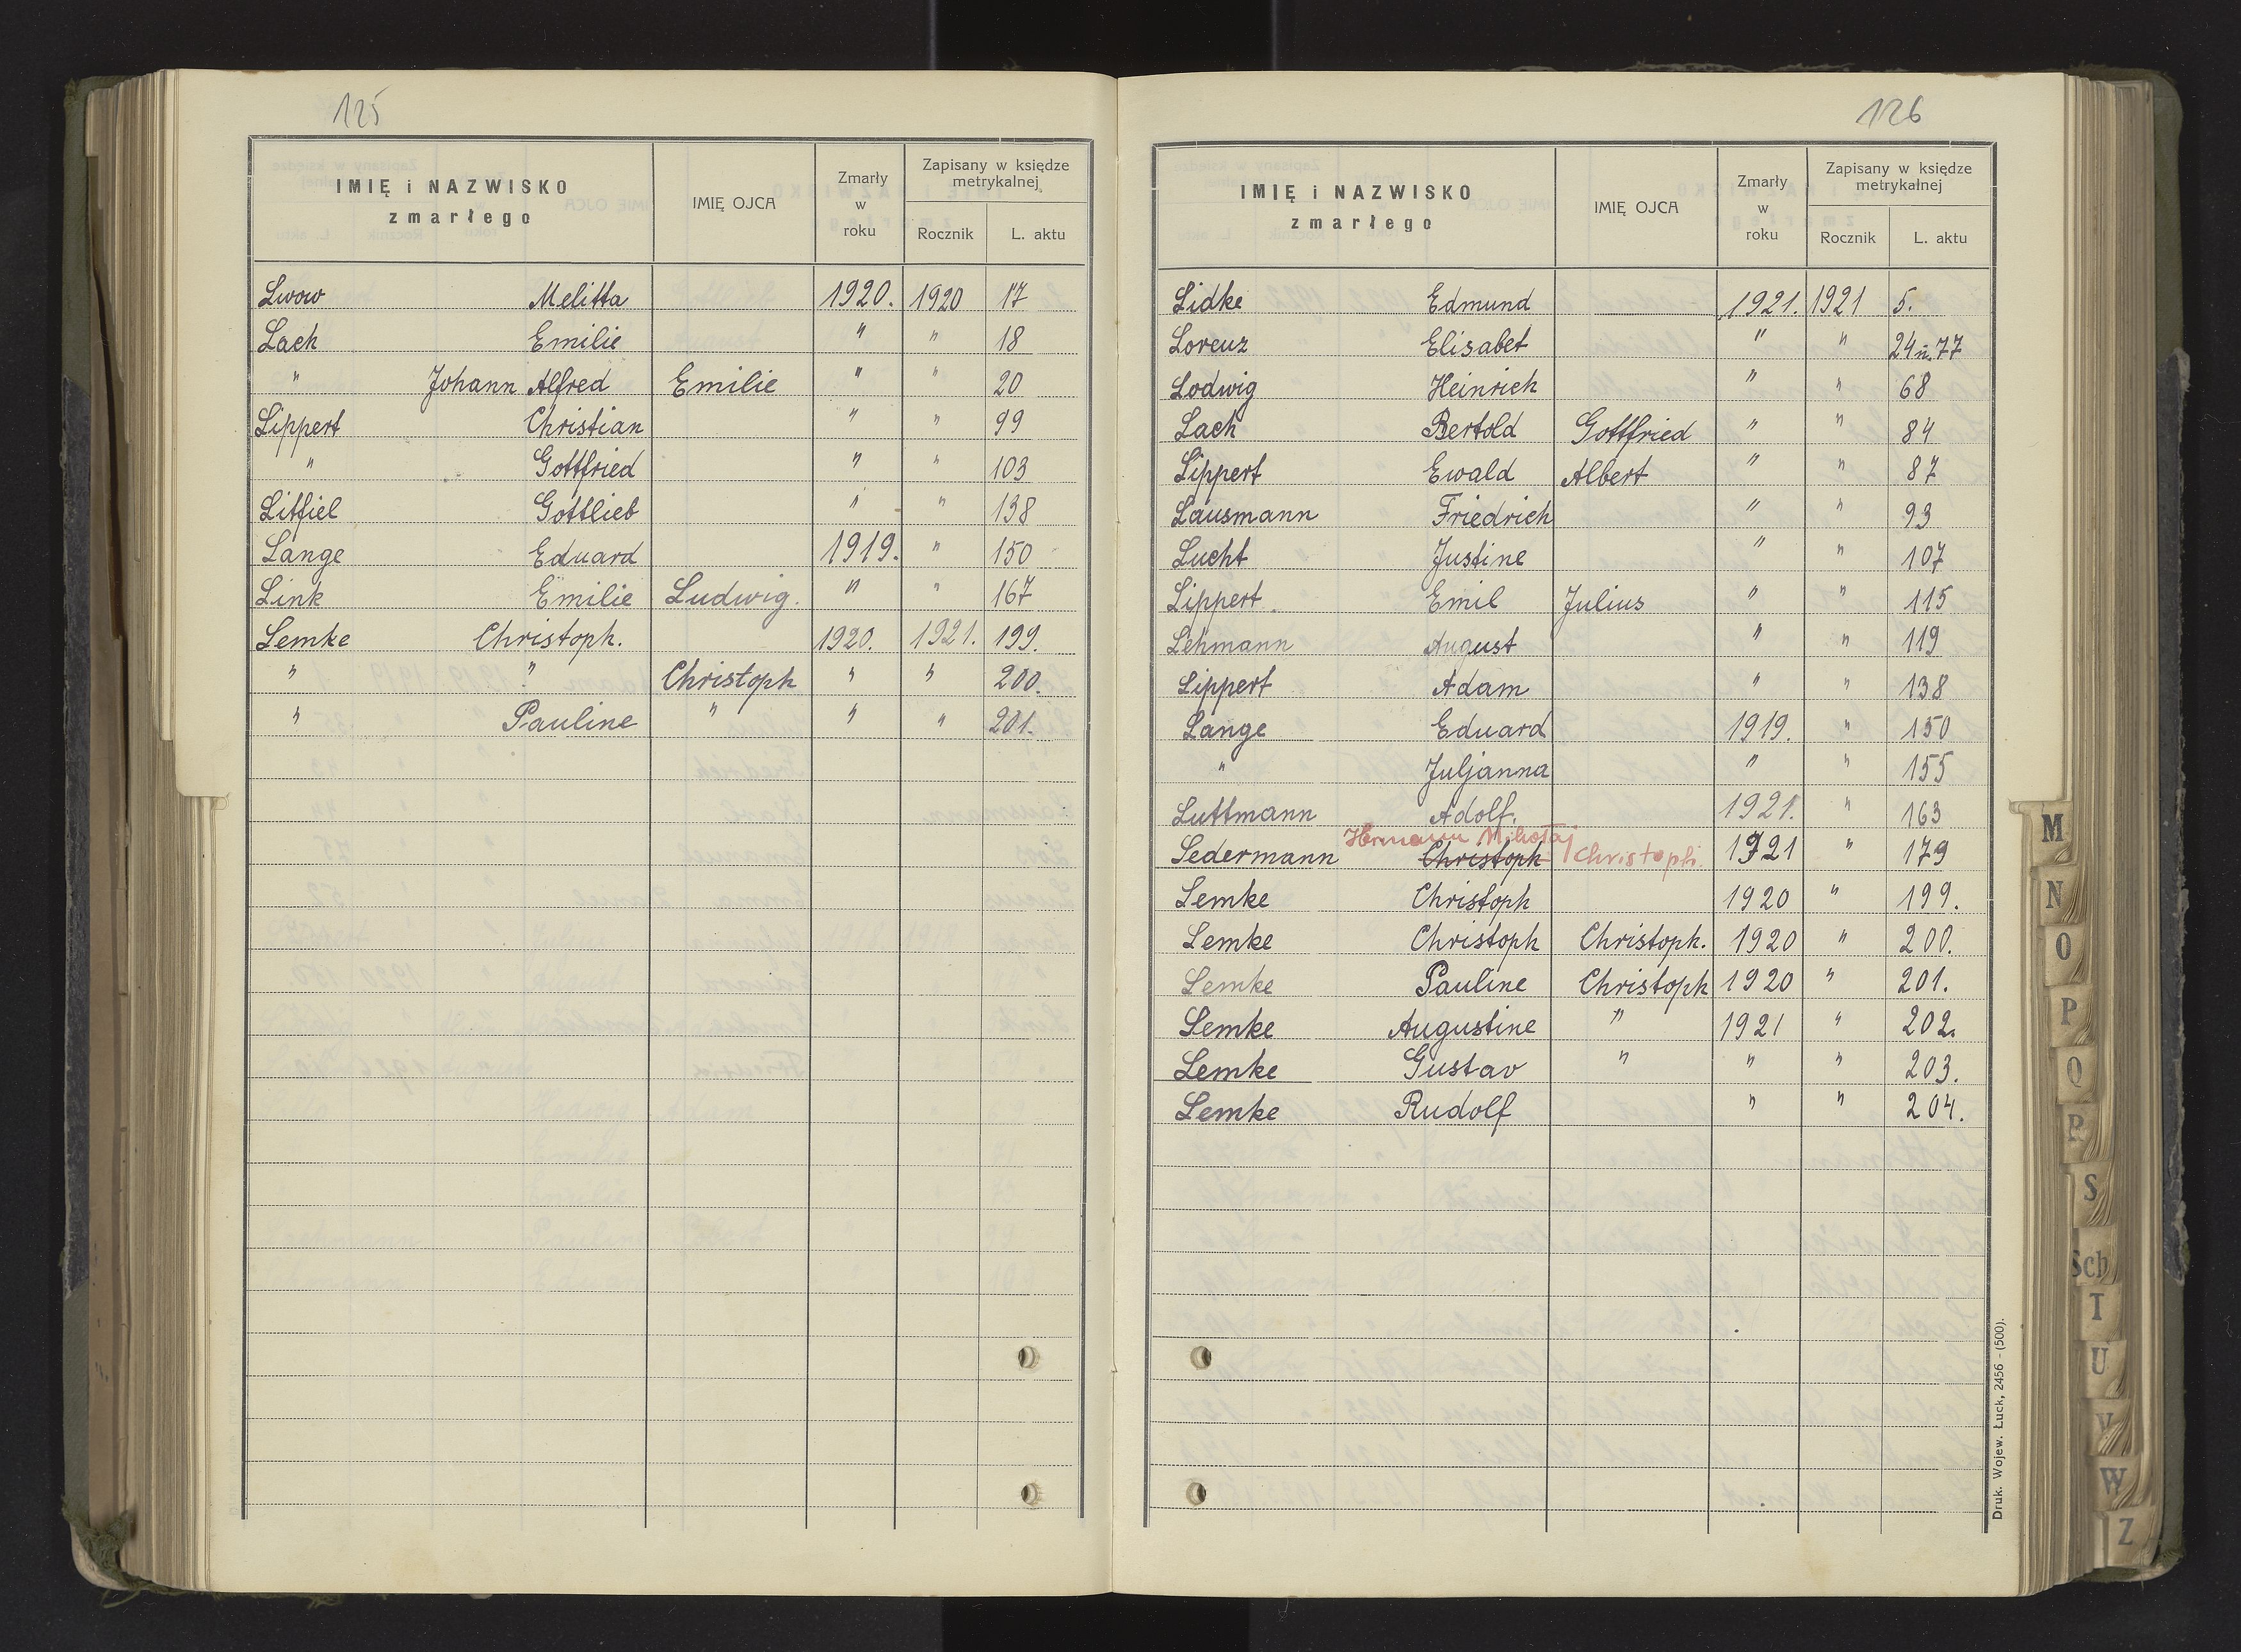 125
IMIĘ i NAZWISKO zmarłego IMIĘ OJCA Zmarły w roku Zapisany w księdze metrykalnej Rocznik L. aktu
Lwow Melitta 1920. 1920 17
Lach Emilie " " 18
" Johann Alfred Emilie " " 20
Lippert Christian " " 99
" Gottfried " " 103
Litfiel Gottlieb " " 138
Lange Eduard 1919. " 150
Link Emilie Ludwig. " " 167
Lemke Christoph. 1920. 1921. 199.
" " Christoph " " 200.
" Pauline " " " 201.
126
IMIĘ i NAZWISKO zmarłego IMIĘ OJCA Zmarły w roku Zapisany w księdze metrykalnej Rocznik L. aktu
Lidke Edmund 1921. 1921 5.
Lorenz Elisabet " " 24 u. 77
Lodwig Heinrich " " 68
Lach Bertold Gottfried " " 84
Lippert Ewald Albert " " 87
Lausmann Friedrich " " 93
Lucht Justine " " 107
Lippert Emil Julius " " 115
Lehmann August " " 119
Lippert Adam " " 138
Lange Eduard 1919. " 150
" Juljanna " " 155
Luttmann Adolf. 1921. " 163
Hermann Mikołaj
Ledermann Christoph Christoph. 1921 " 179
Lemke Christoph 1920 " 199.
Lemke Christoph Christoph. 1920 " 200.
Lemke Pauline Christoph 1920 " 201.
Lemke Augustine " 1921 " 202.
Lemke Gustav " " " 203.
Lemke Rudolf " " 204.
Druk. Wojew. Łuck, 2456 - (500).
M
N
O
P
Q
R
S
Sch
T
U
V
W
Z